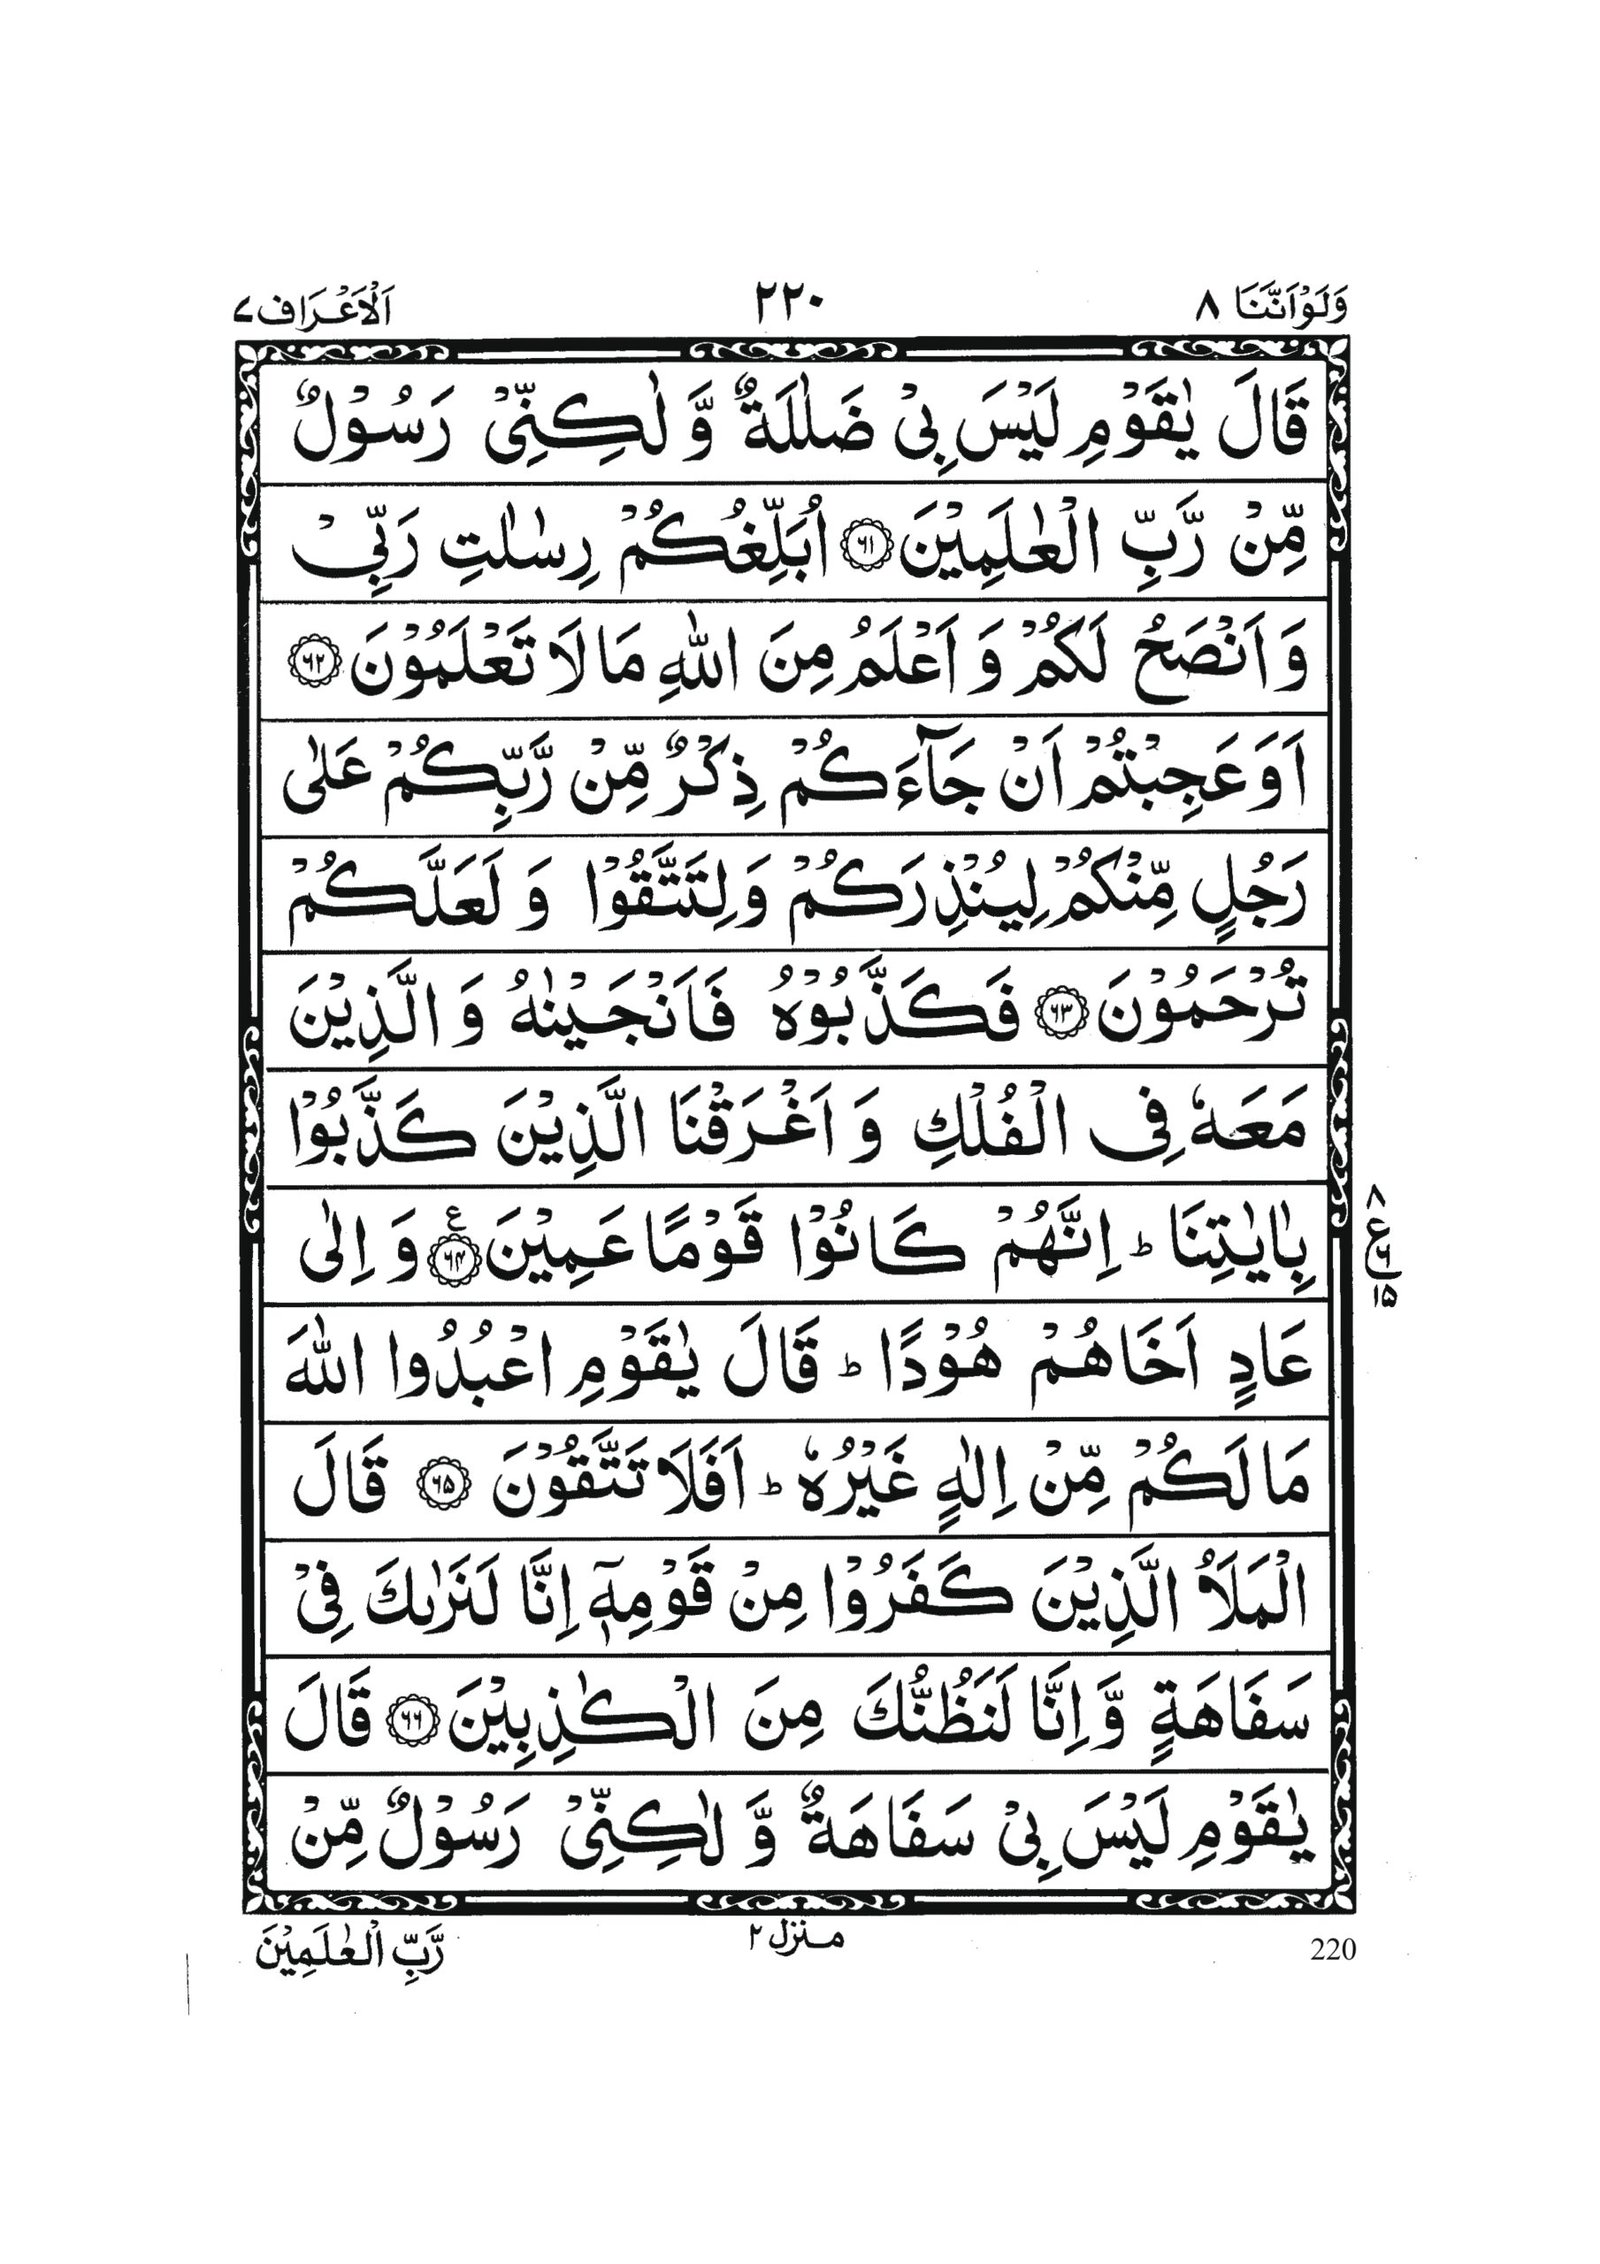 وَلَوْاَنَّنَا ۸
۲۲۰
اَلْاَعْرَاف ۷
قَالَ يٰقَوْمِ لَيْسَ بِيْ ضَلٰلَةٌ وَّ لٰكِنِّيْ رَسُوْلٌ
مِّنْ رَّبِّ الْعٰلَمِيْنَ ﴿۶۱﴾ اُبَلِّغُكُمْ رِسٰلٰتِ رَبِّيْ
وَ اَنْصَحُ لَكُمْ وَ اَعْلَمُ مِنَ اللّٰهِ مَا لَا تَعْلَمُوْنَ ﴿۶۲﴾
اَوَ عَجِبْتُمْ اَنْ جَآءَكُمْ ذِكْرٌ مِّنْ رَّبِّكُمْ عَلٰى
رَجُلٍ مِّنْكُمْ لِيُنْذِرَكُمْ وَلِتَتَّقُوْا وَ لَعَلَّكُمْ
تُرْحَمُوْنَ ﴿۶۳﴾ فَكَذَّبُوْهُ فَاَنْجَيْنٰهُ وَ الَّذِيْنَ
مَعَهٗ فِي الْفُلْكِ وَ اَغْرَقْنَا الَّذِيْنَ كَذَّبُوْا
بِاٰيٰتِنَا ؕ اِنَّهُمْ كَانُوْا قَوْمًا عَمِيْنَ ﴿۶۴﴾ ع وَ اِلٰى
عَادٍ اَخَاهُمْ هُوْدًا ؕ قَالَ يٰقَوْمِ اعْبُدُوا اللّٰهَ
مَا لَكُمْ مِّنْ اِلٰهٍ غَيْرُهٗ ؕ اَفَلَا تَتَّقُوْنَ ﴿۶۵﴾ قَالَ
الْمَلَاُ الَّذِيْنَ كَفَرُوْا مِنْ قَوْمِهٖۤ اِنَّا لَنَرٰىكَ فِيْ
سَفَاهَةٍ وَّ اِنَّا لَنَظُنُّكَ مِنَ الْكٰذِبِيْنَ ﴿۶۶﴾ قَالَ
يٰقَوْمِ لَيْسَ بِيْ سَفَاهَةٌ وَّ لٰكِنِّيْ رَسُوْلٌ مِّنْ
۸
ع ۶
۱۵
220
منزل ۲
رَّبِّ الْعٰلَمِيْنَ